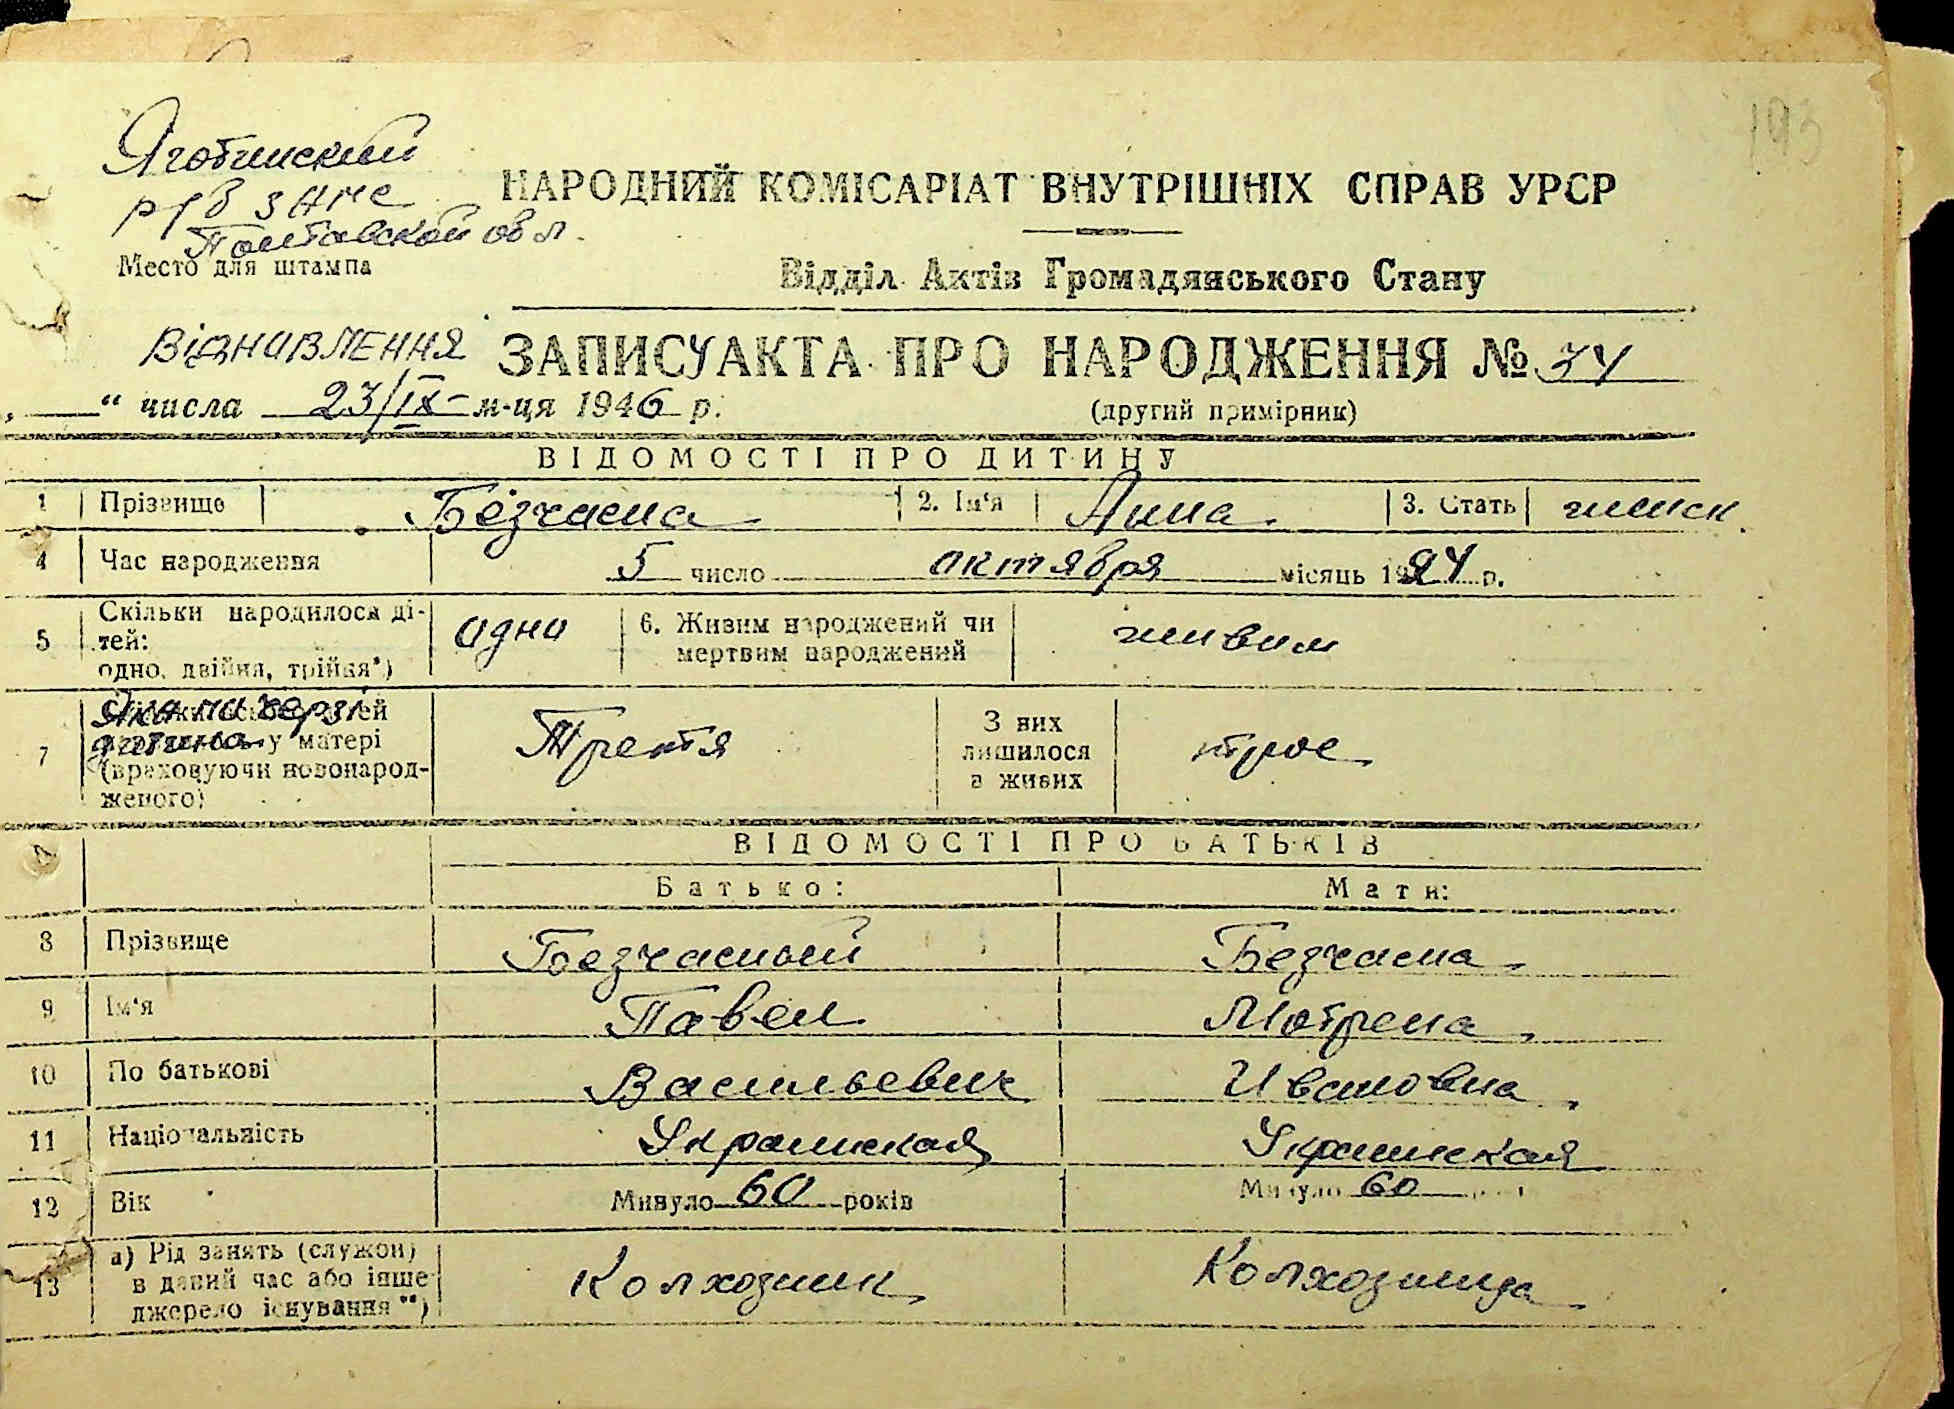 193
Яготинский
р/в ЗАГС
Полтавской обл.
Место для штампа
НАРОДНИЙ КОМІСАРІАТ ВНУТРІШНІХ СПРАВ УРСР
Відділ Актів Громадянського Стану
Відновлення ЗАПИСУ АКТА ПРО НАРОДЖЕННЯ № 74
„ “ числа 23/IX м-ця 1946 р.
(другий примірник)
ВІДОМОСТІ ПРО ДИТИНУ
1 Прізвище Безчасна 2. Ім‘я Анна 3. Стать женск.
4 Час народження 5 число октября місяць 1924 р.
5 Скільки народилося ді-
тей:
одно, двійня, трійня*) одна 6. Живим народжений чи
мертвим народжений живим
7 Яка по черзі дитина у матері
(враховуючи новонарод-
женого) Третя З них
лишилося
в живих трое
ВІДОМОСТІ ПРО БАТЬКІВ
Батько: Мати:
8 Прізвище Безчасный Безчасна
9 Ім‘я Павел Мотрена
10 По батькові Васильевич Ивановна
11 Національність Украинская Украинская
12 Вік Минуло 60 років Минуло 60 років
13 а) Рід занять (служби)
в даний час або інше
джерело існування**) Колхозник Колхозница